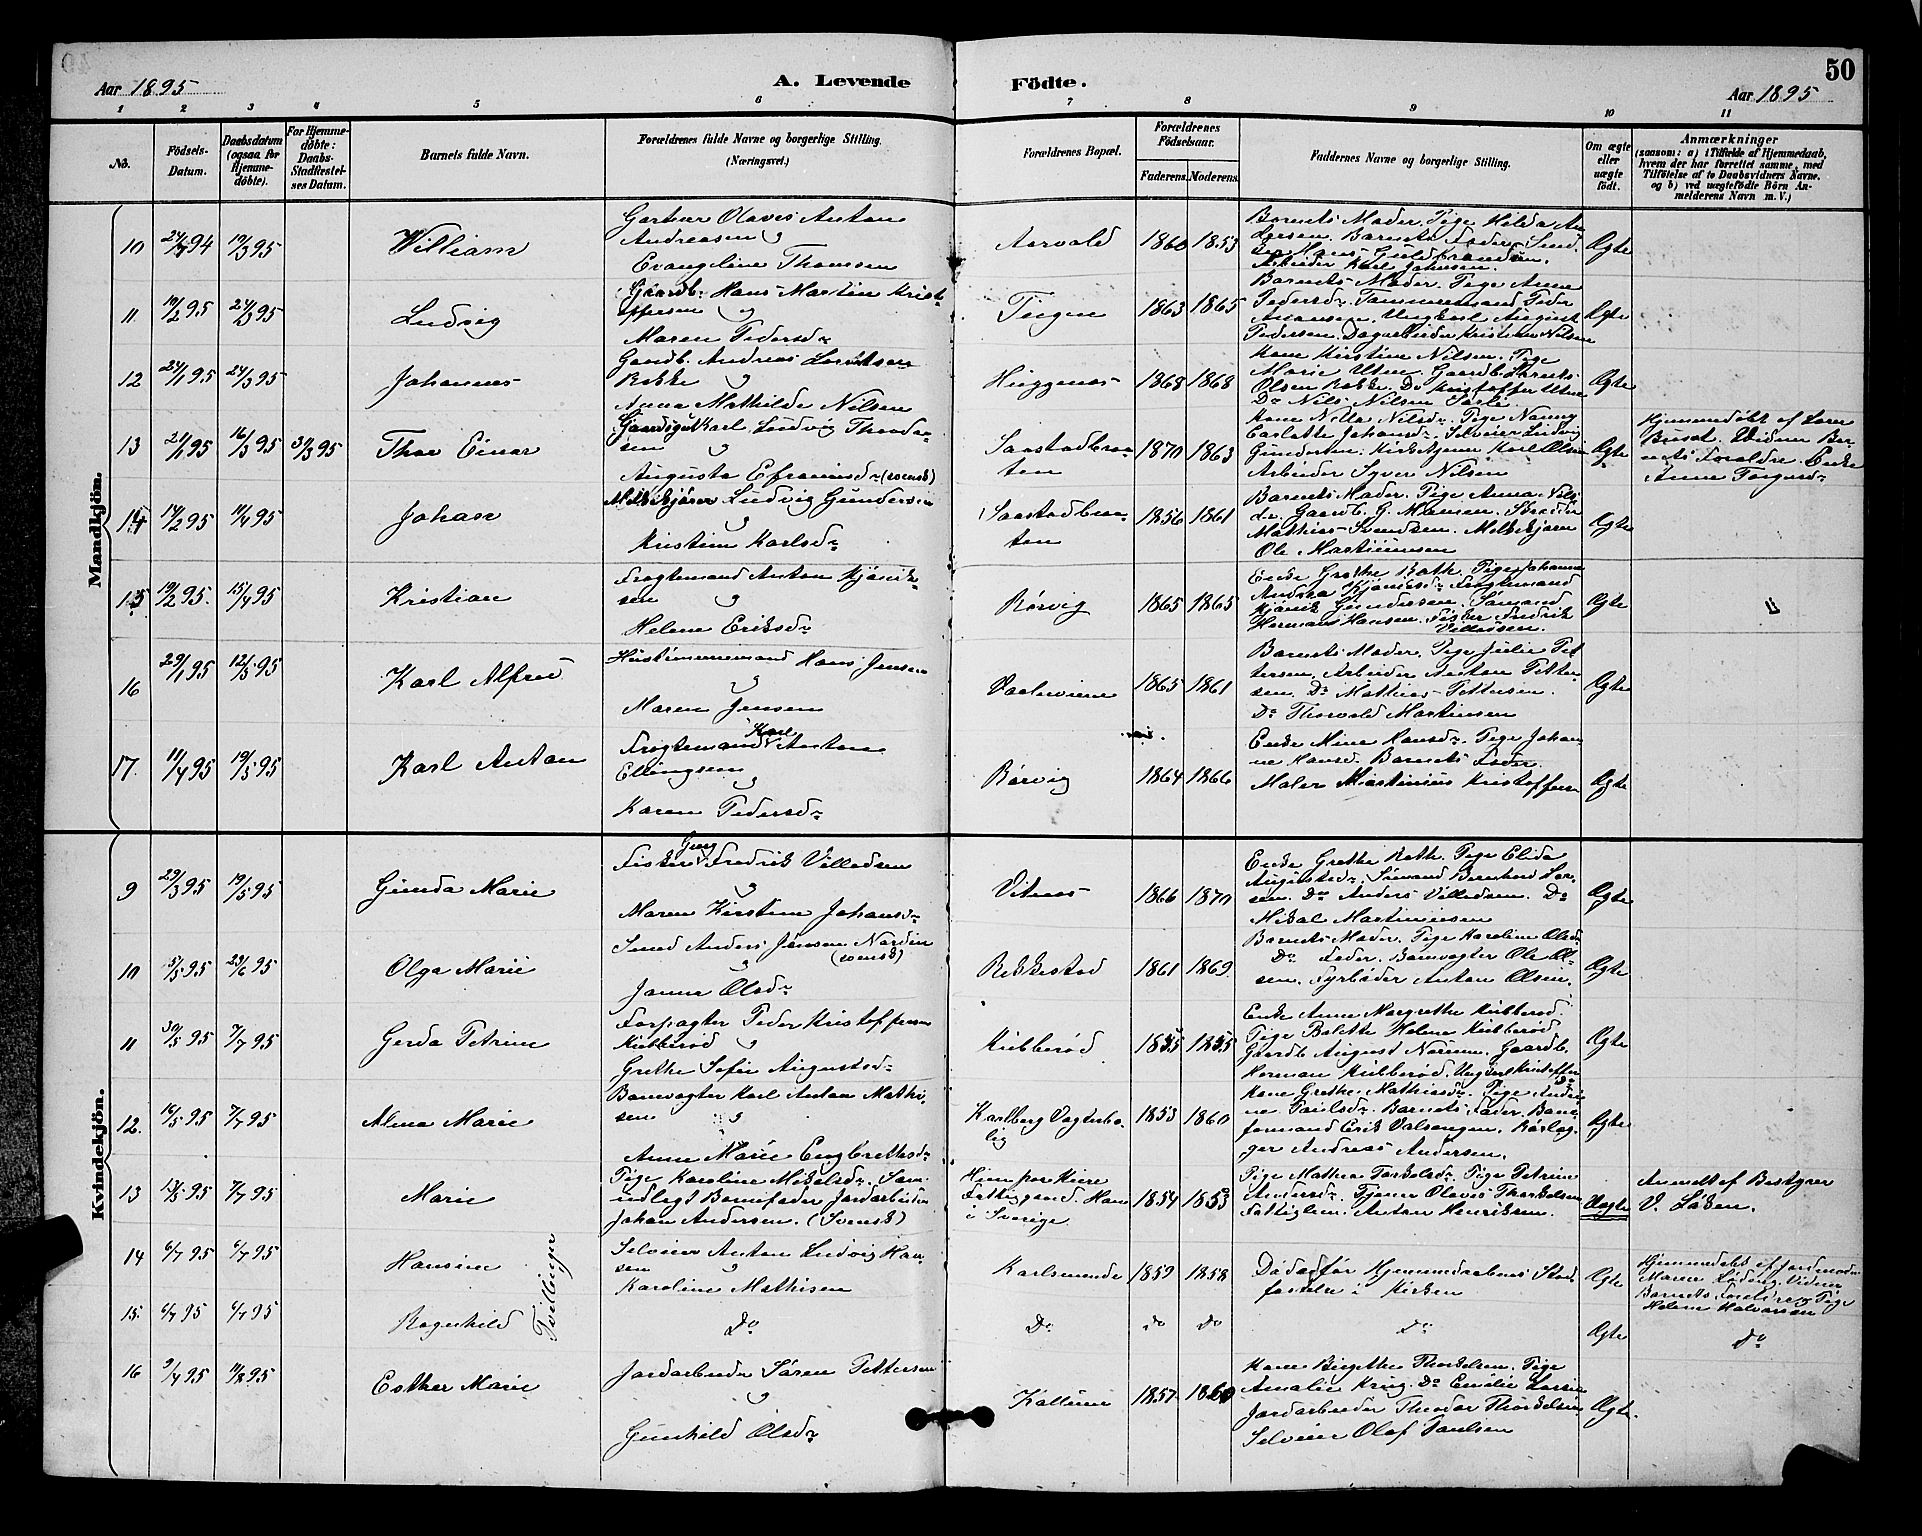 50
Aar 1895
A. Levende
Födte.
Aar 1895
1 2 3 4 5 6 7 8 9 10 11
No.
Födsels-
Datum.
Daabsdatum
(ogsaa for
Hjemme-
döbte).
For Hjemme-
döbte:
Daabs-
Stadfæstel-
ses Datum.
Barnets fulde Navn.
Forældrenes fulde Navne og borgerlige Stilling.
(Næringsvei.)
Forældrenes Bopæl.
Forældrenes
Födselsaar.
Faderens.
Moderens.
Faddernes Navne og borgerlige Stilling.
Om ægte
eller
uægte
födt.
Anmærkninger
(saasom: a) i Tilfælde af Hjemmedaab,
hvem der har forrettet samme, med
Tilföielse af to Daabsvidners Navne.
og b) ved uægtefödte Börn An-
melderens Navn m. V.)
Mandkjön.
10 94 19/3 95
William
Gartner Olaves Anton
Andreasen
Evangeline Thomsen
Aarvold
1860 1853
Barnets Moder. Pige Hilda An
dersen. Barnets Fader.
Hans Guldbrandsen.
Arbeider Karl Johnsen.
Ægte
11 95 24/3 95
Ludvig
Gaardb. Hans Martin Krist
offersen og
Maren Pedersdr
1863 1865
Barnets Moder. Pige Anne
Pedersdr. Peder
Ungkarl August
Pedersen. Kristian Nilsen
Ægte
12 24/1 95 24/3 95
Johannes
Gaardb. Andreas
Anna Mathilde Nilsen
Huggenæs
1868 1868
Kone Kirstine Nilsen. Pige
Marie Uten. Gaardb.
Olsen Do Kristoffer
Do Nils Nilsen
Ægte
13 21/1 95 16/3 95 31/3 95
Thor Einar
Karl Ludvig Theodor-
sen
Augusta Efraimsdr (svensk)
Saastadbraa-
ten
1870 1863
Kone Nilsdr. Pige Nanny
Johansdr. Selveier Ludvig
Gundersen. Karl Olsen
Arbeider Syver Nilsen
Ægte
Hjemmedöbt af
Vidner Bar-
nets Foreldre. Enke
Anne
14 14/2 95 11/4 95
Johan
Melkekjörer Ludvig Gundersen
Kristine Karlsdr
Saastadbraa-
ten
1856 1861
Barnets Moder. Pige Anna Nils
dr. Gaardb. G. Hansen.
Mathias Svendsen. Melkekjörer
Ole Martiniusen
Ægte
15 19/2 95. 15/4 95
Kristian
Fragtemand Anton Kjönik-
sen
Helene Eriksdr
Rörvig
1865 1865
Enke Grethe Roth. Pige Johanna
Andrea Fragtemand
Gundersen. Sömand
Herman Hansen. Fisker Fredrik
Villadsen.
Ægte
16 29/1 95 12/5 95
Karl Alfred
Husmand Hans Jensen
Maren Jensen
1865 1861
Barnets Moder. Pige Julie Pet
tersen. Arbeider Anton Petter-
sen. Do Mathias Pettersen.
Do Thorvald Martinsen
Ægte
17. 11/4 95 19/5 95
Karl Anton
Karl
Fragtemand Anton
Ellingsen
Karen Pedersdr
Rörvig
1864 1866
Enke Mina Hansdr. Pige Johan
ne Hansd. Barnets Fader.
Maler Martinius Kristoffersen
Ægte
Kvindekjön.
9 29/3 95 19/5 95
Gunda Marie
Georg
Fisker Fredrik Villadsen
Maren Kirstine Johansdr
Vitnæs
1866 1870
Enke Grethe Roth. Pige Elida
Augustsdr. Sömand Bernhard Lar-
sen. Do Anders Villadsen. Do
Mikal Martiniusen
Ægte
10 5/5 95 23/6 95
Olga Marie
Smed Anders Jönsen Nordin
(svensk)
Janna Olsdr
Rekkestad
1861 1869.
Barnets Moder. Pige Karoline Olsdr
Do Fader. Banevogter Ole Ol-
sen. Fyrböder Anton Olsen.
Ægte
11 30/5 95 7/7 95
Gerda Petrine
Forpagter Peder Kristoffersen
Kubberöd
Grethe Sofie Augustsdr
Kubberöd
1855 1855
Enke Anne Margrethe Kubberöd.
Pige Bolette Helene Kubberöd.
Gaardb August Gaardb.
Herman Kubberöd. Ungkarl Kristoffer
Ægte
12. 16/5 95 7/7 95
Alma Marie
Banevogter Karl Anton Mathi-
sen
Anne Marie Engbrethsdr
Karlberg Vogterbo-
lig
1853 1860
Kone Grethe Mathiasdr. Pige Andri
ne Paulsdr. Barnets Fader. Bane-
formand Erik Valsengen. Rörleg-
ger Andreas Andersen.
Ægte
13 95 7/7 95
Marie
Pige Karoline Mikalsdr. Sam-
udlagt Barnefader Jordarbeider
Johan Andersen. (Svensk)
Fattiggaard. Han
i Sverige
1854 1853
Pige Mathea Torkelsdr. Pige Petrine
Andersdr. Tjener Olaves Thorkelsen
Fattiglem. Anton Henriksen.
Uægte
Anmeldt af Bestyrer
V. Löken.
14 6/7 95 6/7 95
Hansine
Tvillinger
Selveier Anton Ludvig Han-
sen
Karoline Mathisen
Karlsrunde
1859 1858
Döde för Hjemmedaabens Stad
festelse i Kirken
Ægte
Hjemmedöbt af Jordemoder
Maren Vidner
Barnets Foreldre og Pige
Helene Halvorsen
15. 6/7 95 6/7 95
Ragnhild
Do
Do
do do
Do
Ægte
Do
16 9/4 95 11/8 95
Esther Marie
Jordarbeider Sören Pettersen
Gunhild Olsdr
Kallum
1857 1860
Kone Birgitte Thorkelsen. Pige
Amalie Krug. Do Emilie Larsen
Jordarbeider Theodor Thorkelsen
Selveier Olaf Paulsen
Ægte.